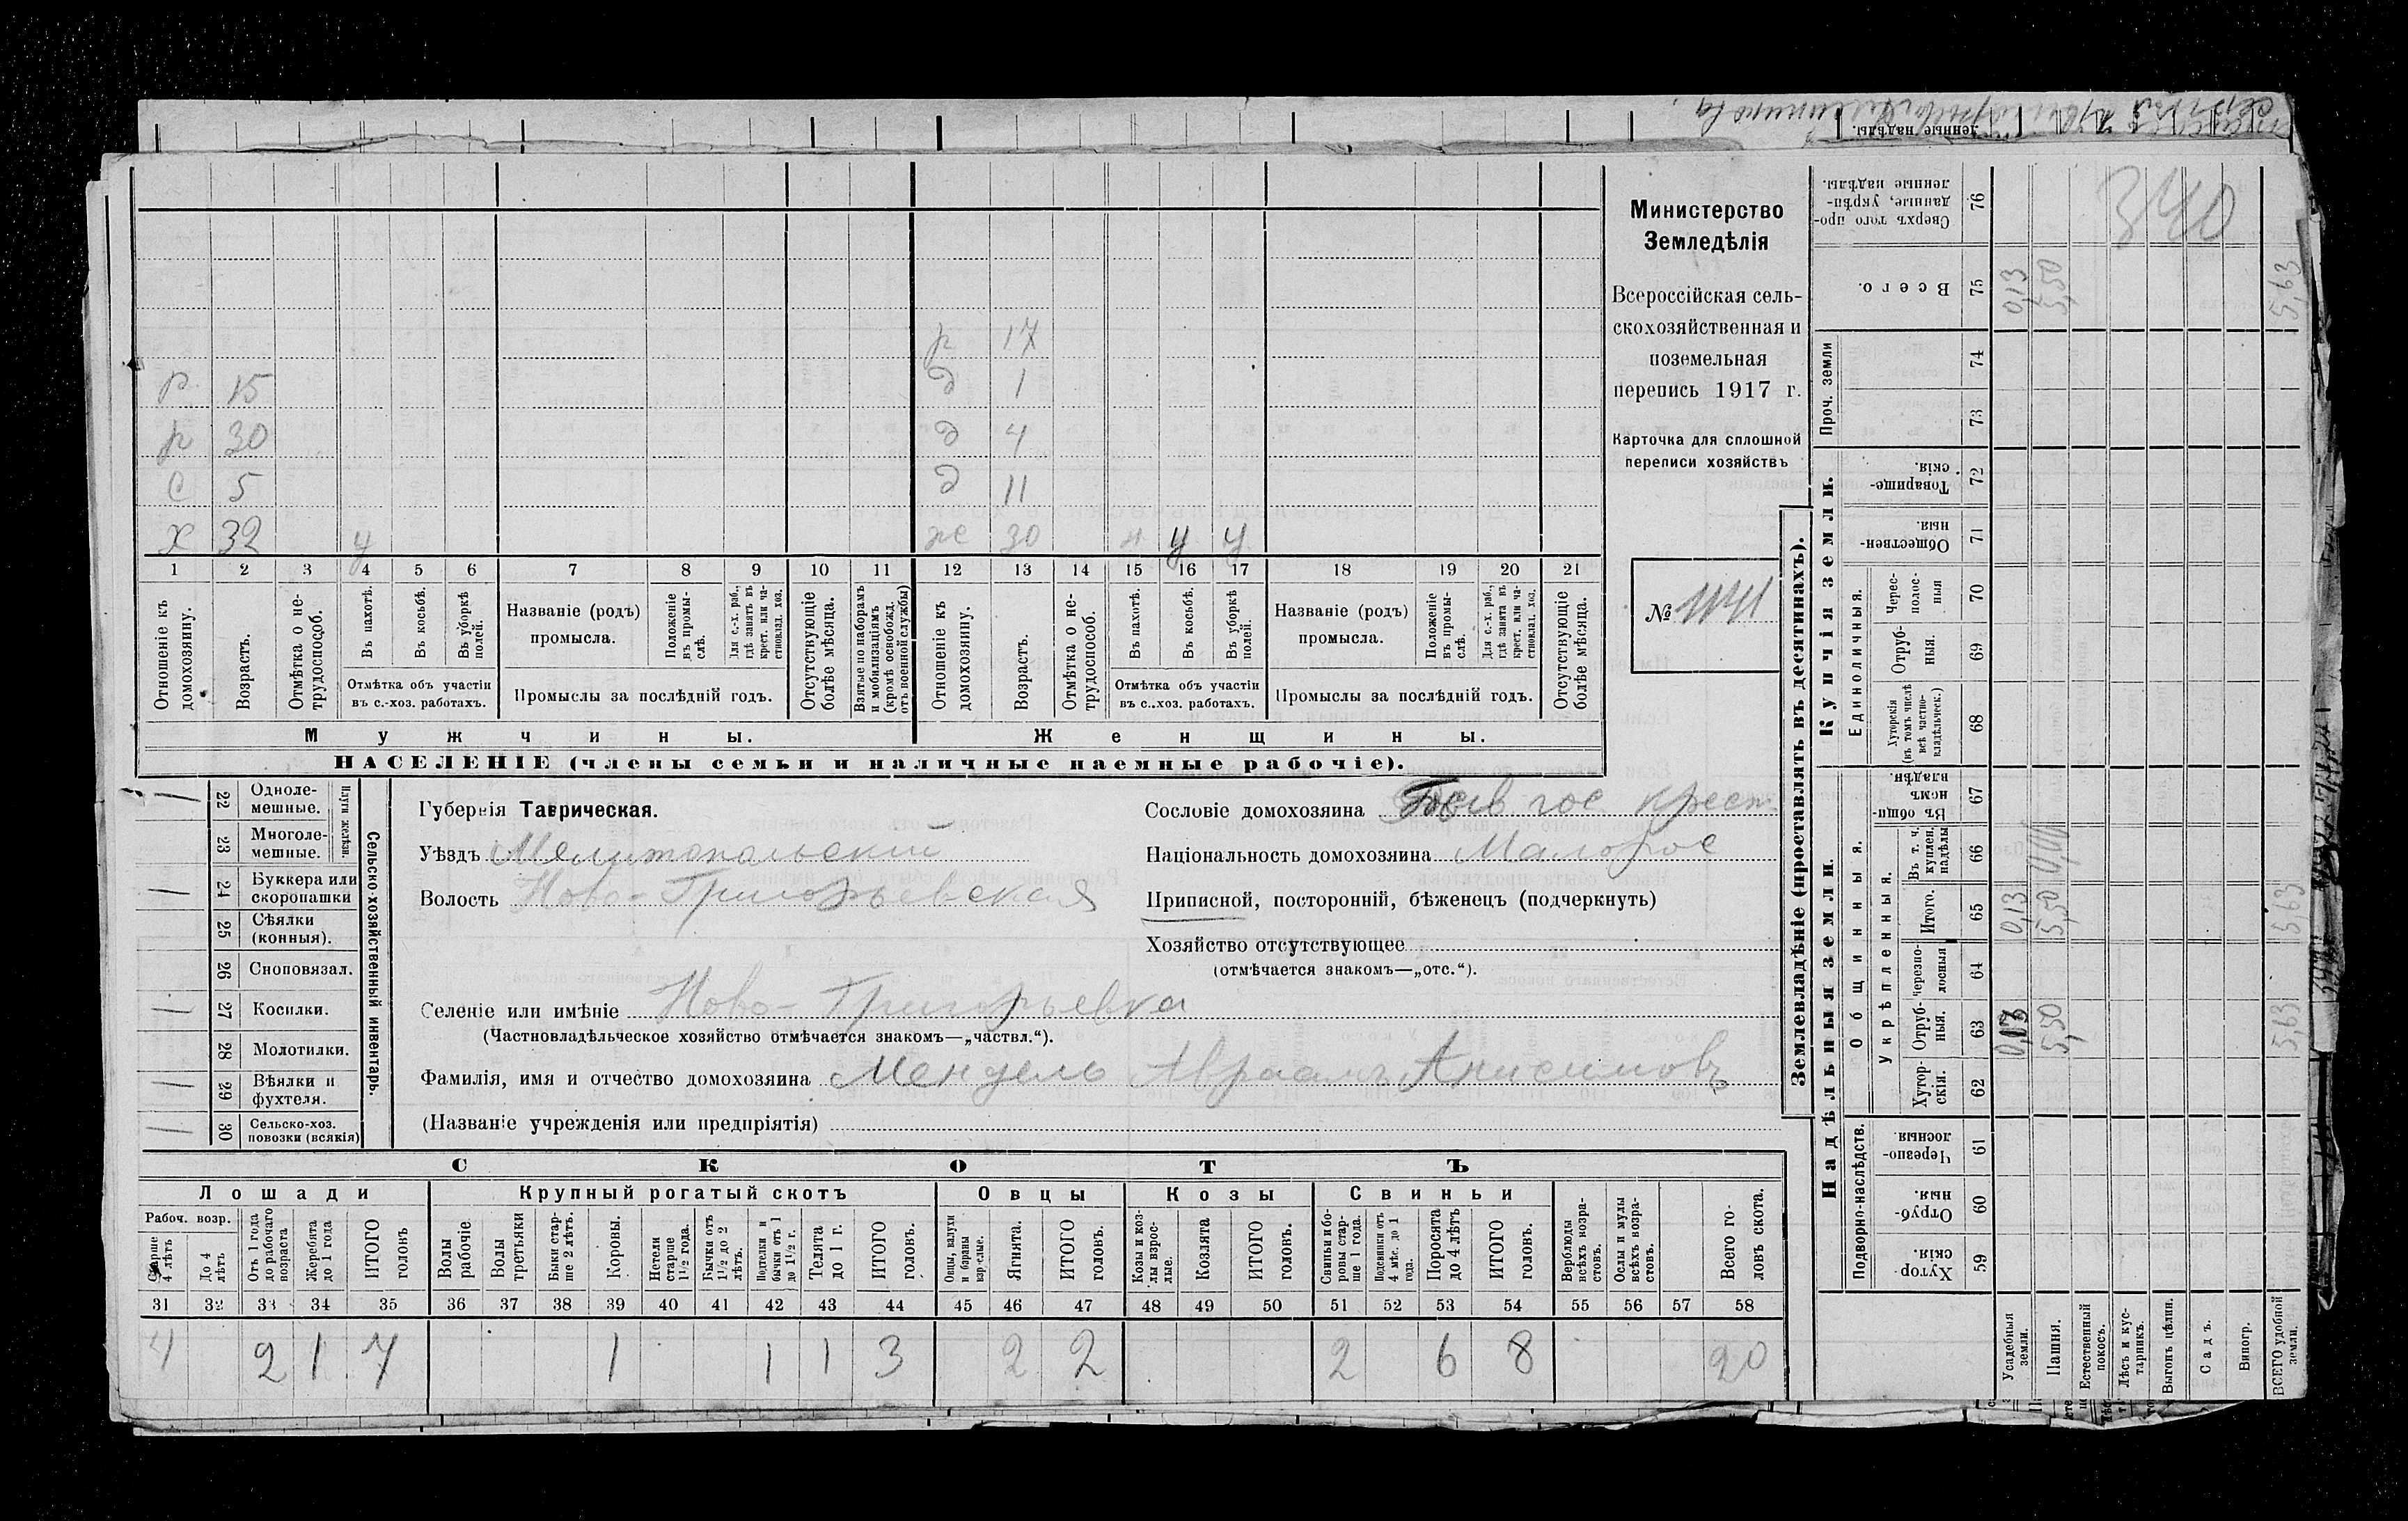 Министерство
Земледѣлія
Всероссійская сель-
скохозяйственная и
поземельная
перепись 1917 г.
Карточка для сплошной
переписи хозяйствъ
№ 1141
р 17
р 15 д 1
р 30 д 4
с 5 д 11
х 32 у ж 30 у у
1 2 3 4 5 6 7 8 9 10 11 12 13 14 15 16 17 18 19 20 21
Отношеніе къ домохозяину.
Возрастъ.
Отмѣтка о не-трудоспособ.
Въ пахотѣ.
Въ косьбѣ.
Въ уборкѣ полей.
Отмѣтка объ участіи въ с.-хоз. работахъ.
Названіе (родъ) промысла.
Положеніе въ промы-слѣ.
Для с.-х. раб., гдѣ занятъ въ крест. или ча-стновлад. хоз.
Промыслы за послѣдній годъ.
Отсутствующіе болѣе мѣсяца.
Взятые по наборамъ и мобилизаціямъ (кромѣ освобожд. отъ военной службы)
Отношеніе къ домохозяину.
Возрастъ.
Отмѣтка о не-трудоспособ.
Въ пахотѣ.
Въ косьбѣ.
Въ уборкѣ полей.
Отмѣтка объ участіи въ с.-хоз. работахъ.
Названіе (родъ) промысла.
Положеніе въ промы-слѣ.
Для с.-х. раб., гдѣ занятъ въ крест. или ча-стновлад. хоз.
Промыслы за послѣдній годъ.
Отсутствующіе болѣе мѣсяца.
Мужчины. Женщины.
НАСЕЛЕНІЕ (члены семьи и наличные наемные рабочіе).
Сельско-хозяйственный инвентарь.
Плуги желѣзн.
22 Одноле-мешные.
23 Многоле-мешные.
24 Буккера или скоропашки
25 Сѣялки (конныя).
26 Сноповязал.
27 Косилки.
28 Молотилки.
29 Вѣялки и фухтеля.
30 Сельско-хоз. повозки (всякія)
Губернія Таврическая.
Уѣздъ Мелитопольский
Волость Ново-Григорьевская
Сословіе домохозяина гос крест.
Національность домохозяина Малорос
Приписной, посторонній, бѣженецъ (подчеркнуть)
Хозяйство отсутствующее
(отмѣчается знакомъ—„отс.“).
Селеніе или имѣніе Ново-Григорьевка
(Частновладѣльческое хозяйство отмѣчается знакомъ—„частвл.“).
Фамилія, имя и отчество домохозяина Мендель Авраамъ Анисимовъ
(Названіе учрежденія или предпріятія)
СКОТЪ
Лошади Крупный рогатый скотъ Овцы Козы Свиньи
Рабоч. возр.
Старше 4 лѣтъ
До 4 лѣтъ
Отъ 1 года до рабочаго возраста
Жеребята до 1 года
ИТОГО головъ
Волы рабочіе
Волы третьяки
Быки стар-ше 2 лѣтъ.
Коровы.
Нетели старше 1½ года.
Бычки отъ 1½ до 2 лѣтъ.
Подтелки и бычки отъ 1 до 1½ г.
Телята до 1 г.
ИТОГО головъ.
Овцы, валухи и бараны взрослые.
Ягнята.
ИТОГО головъ.
Козы и коз-лы взрос-лые.
Козлята
ИТОГО головъ.
Свиньи и бо-ровы стар-ше 1 года.
Подсвинки отъ 4 мѣс. до 1 года.
Поросята до 4 лѣтъ
ИТОГО головъ.
Верблюды всѣхъ возра-стовъ.
Ослы и мулы всѣхъ возра-стовъ.
Всего го-ловъ скота.
31 32 33 34 35 36 37 38 39 40 41 42 43 44 45 46 47 48 49 50 51 52 53 54 55 56 57 58
4 2 1 7 1 1 1 3 2 2 2 6 8 20
Землевладѣніе (проставлять въ десятинахъ).
Купчія земли.
Надѣльныя земли.
Сверхъ того про-данные, укрѣп-ленные надѣлы. 76
340
Всего. 75 0,13 5,50 5,63
Проч. земли 74 73
Товарище-скія. 72
Обществен-ныя. 71
Единоличныя.
Черес-полос-ныя 70
Отруб-ныя. 69
Хуторскія (въ томъ числѣ всѣ частно-владѣльческ.) 68
Общинныя.
Въ общи-номъ владѣн. 67
Укрѣпленныя.
Въ т. ч. куплен. надѣлы 66
Итого. 65 0,13 5,50 5,63
Черезпо-лосныя 64
Отруб-ныя. 63 0,13 5,50 5,63
Хутор-скія. 62
Подворно-наслѣдств.
Черезпо-лосныя 61
Отруб-ныя. 60
Хутор-скія. 59
Усадебныя земли.
Пашня.
Естественный покосъ.
Лѣсъ и кус-тарникъ.
Выгонъ цѣлин.
Садъ.
Виногр.
ВСЕГО удобной земли.
ленные надѣлы.